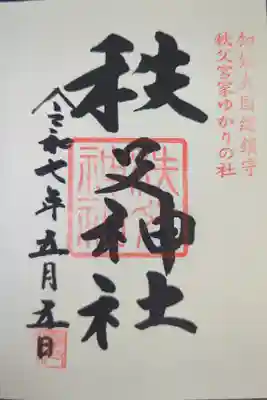 知知夫国総鎮守
秩父宮家ゆかりの社
秩父神社
令和七年五月五日
秩父神社